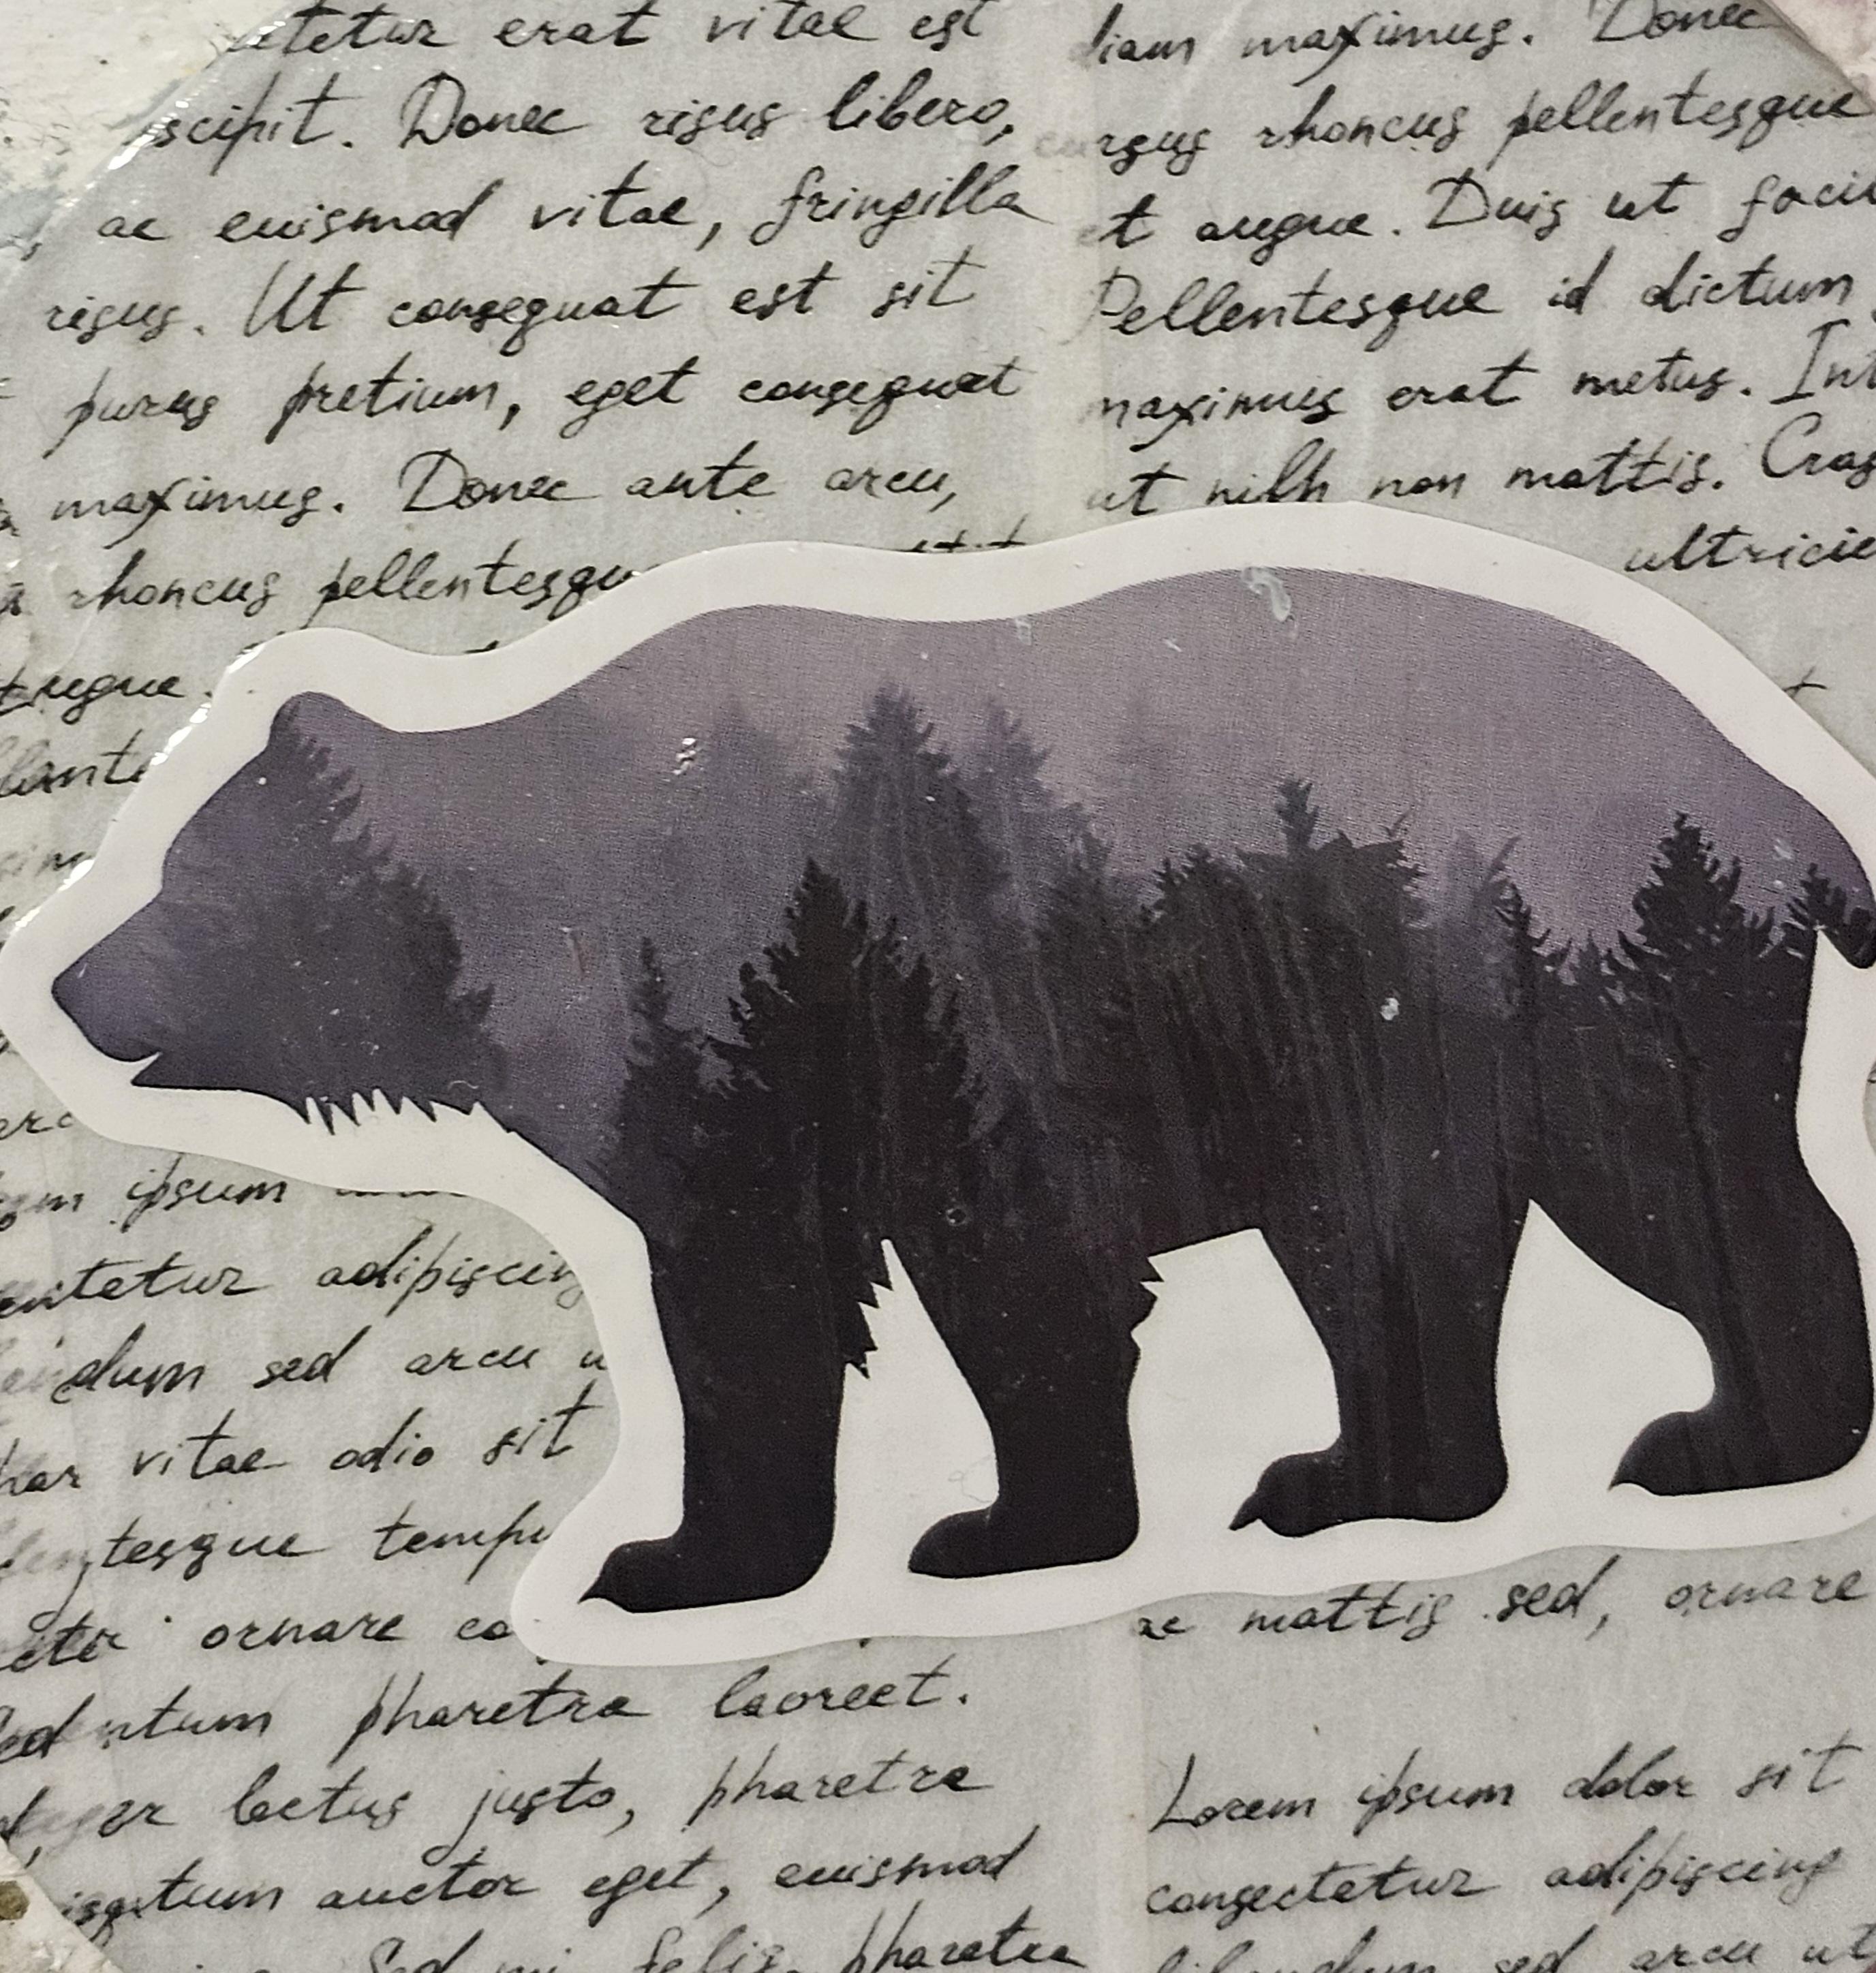 erat vitae est
scipit. Donec risus libero,
ac euismod vitae, fringilla
risus. Ut consequat est sit
purus pretium, eget consequat
maximus. Donec ante arcu,
rhoncus pellentesqu
ipsum
adipiscin
dum sed arcu u
vitae odio sit
tesque tempu
ornare co
pharetra laoreet.
lectus justo, pharetra
auctor eget, euismod
Sed mi felis, pharetra
diam maximus. Donec
rhoncus pellentesque
et augue. Duis ut facil
Pellentesque id dictum
maximus erat metus. Int
ut nibh non mattis. Cras
ultricie
ac mattis sed, ornare
Lorem ipsum dolor sit
consectetur adipiscing
sed arcu ut